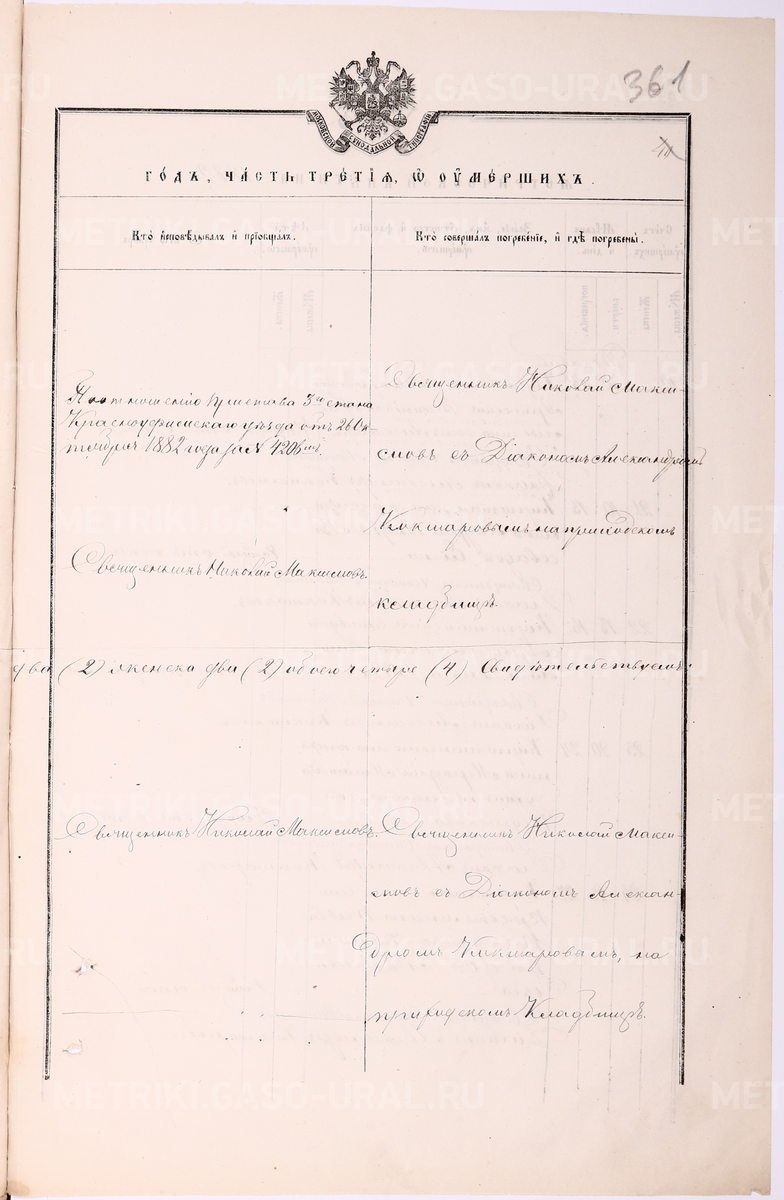 361
МОСКОВСКОЙ СИНОДАЛЬНОЙ ТИПОГРАФІИ
ГОДЪ, ЧАСТЬ ТРЕТІЯ, Ѡ ОУМЕРШИХЪ.
Кто исповѣдывалъ и пріобщалъ.
Кто совершалъ погребеніе, и гдѣ погребены.
По отношенію Пристава 3го стана
Красноуфимскаго уѣзда отъ 26 Ок-
тября 1882 года за № 4206мъ.
Священникъ Николай Максимовъ.
Священникъ Николай Макси-
мовъ съ Діакономъ Александромъ
Кокшаровымъ на приходскомъ
кладбищѣ.
два (2) женска два (2) обоего четыре (4) Свидѣтельствуемъ:
Священникъ Николай Максимовъ.
Священникъ Николай Макси-
мовъ съ Діакономъ Алексан-
дромъ Кокшаровымъ, на
приходскомъ Кладбищѣ.
METRIKI.GASO-URAL.RU